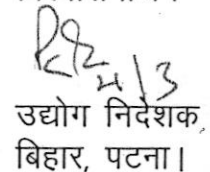 उद्योग निदेशक,
बिहार, पटना।